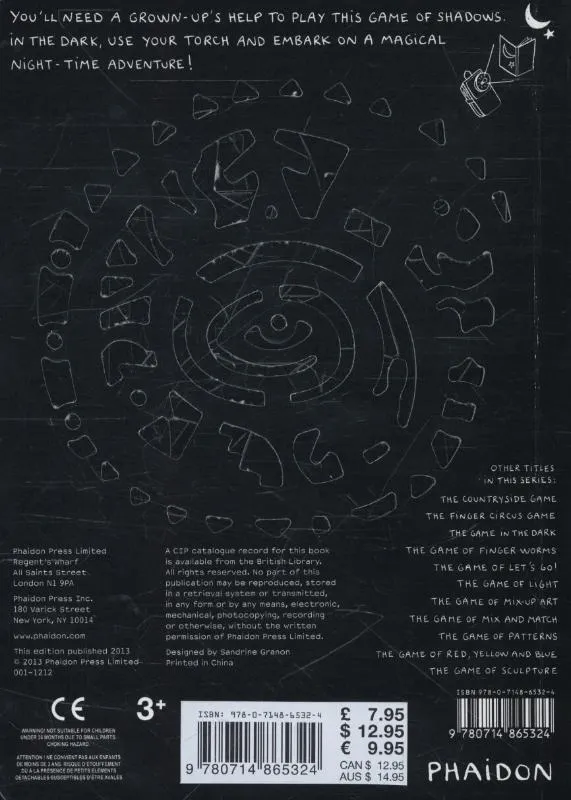 YOU'LL NEED A GROWN-UP'S HELP TO PLAY THIS GAME OF SHADOWS.
IN THE DARK, USE YOUR TORCH AND EMBARK ON A MAGICAL
NIGHT-TIME ADVENTURE!
OTHER TITLES
IN THIS SERIES:
THE COUNTRYSIDE GAME
THE FINGER CIRCUS GAME
THE GAME IN THE DARK
THE GAME OF FINGER WORMS
THE GAME OF LET'S GO!
THE GAME OF LIGHT
THE GAME OF MIX-UP ART
THE GAME OF MIX AND MATCH
THE GAME OF PATTERNS
THE GAME OF RED, YELLOW AND BLUE
THE GAME OF SCULPTURE
Phaidon Press Limited
Regent's Wharf
All Saints Street
London N1 9PA
Phaidon Press Inc.
180 Varick Street
New York, NY 10014
www.phaidon.com
This edition published 2013
© 2013 Phaidon Press Limited
001-1212
A CIP catalogue record for this book
is available from the British Library.
All rights reserved. No part of this
publication may be reproduced, stored
in a retrieval system or transmitted,
in any form or by any means, electronic,
mechanical, photocopying, recording
or otherwise, without the written
permission of Phaidon Press Limited.
Designed by Sandrine Granon
Printed in China
CE
3+
WARNING! NOT SUITABLE FOR CHILDREN
UNDER 36 MONTHS DUE TO SMALL PARTS.
CHOKING HAZARD.
ATTENTION ! NE CONVIENT PAS AUX ENFANTS
DE MOINS DE 3 ANS. RISQUE D'ÉTOUFFEMENT
DÛ À LA PRÉSENCE DE PETITS ÉLÉMENTS
DÉTACHABLES SUSCEPTIBLES D'ÊTRE AVALÉS.
ISBN: 978-0-7148-6532-4
9 780714 865324
£ 7.95
$ 12.95
€ 9.95
CAN $ 12.95
AUS $ 14.95
ISBN 978-0-7148-6532-4
9 780714 865324
PHAIDON